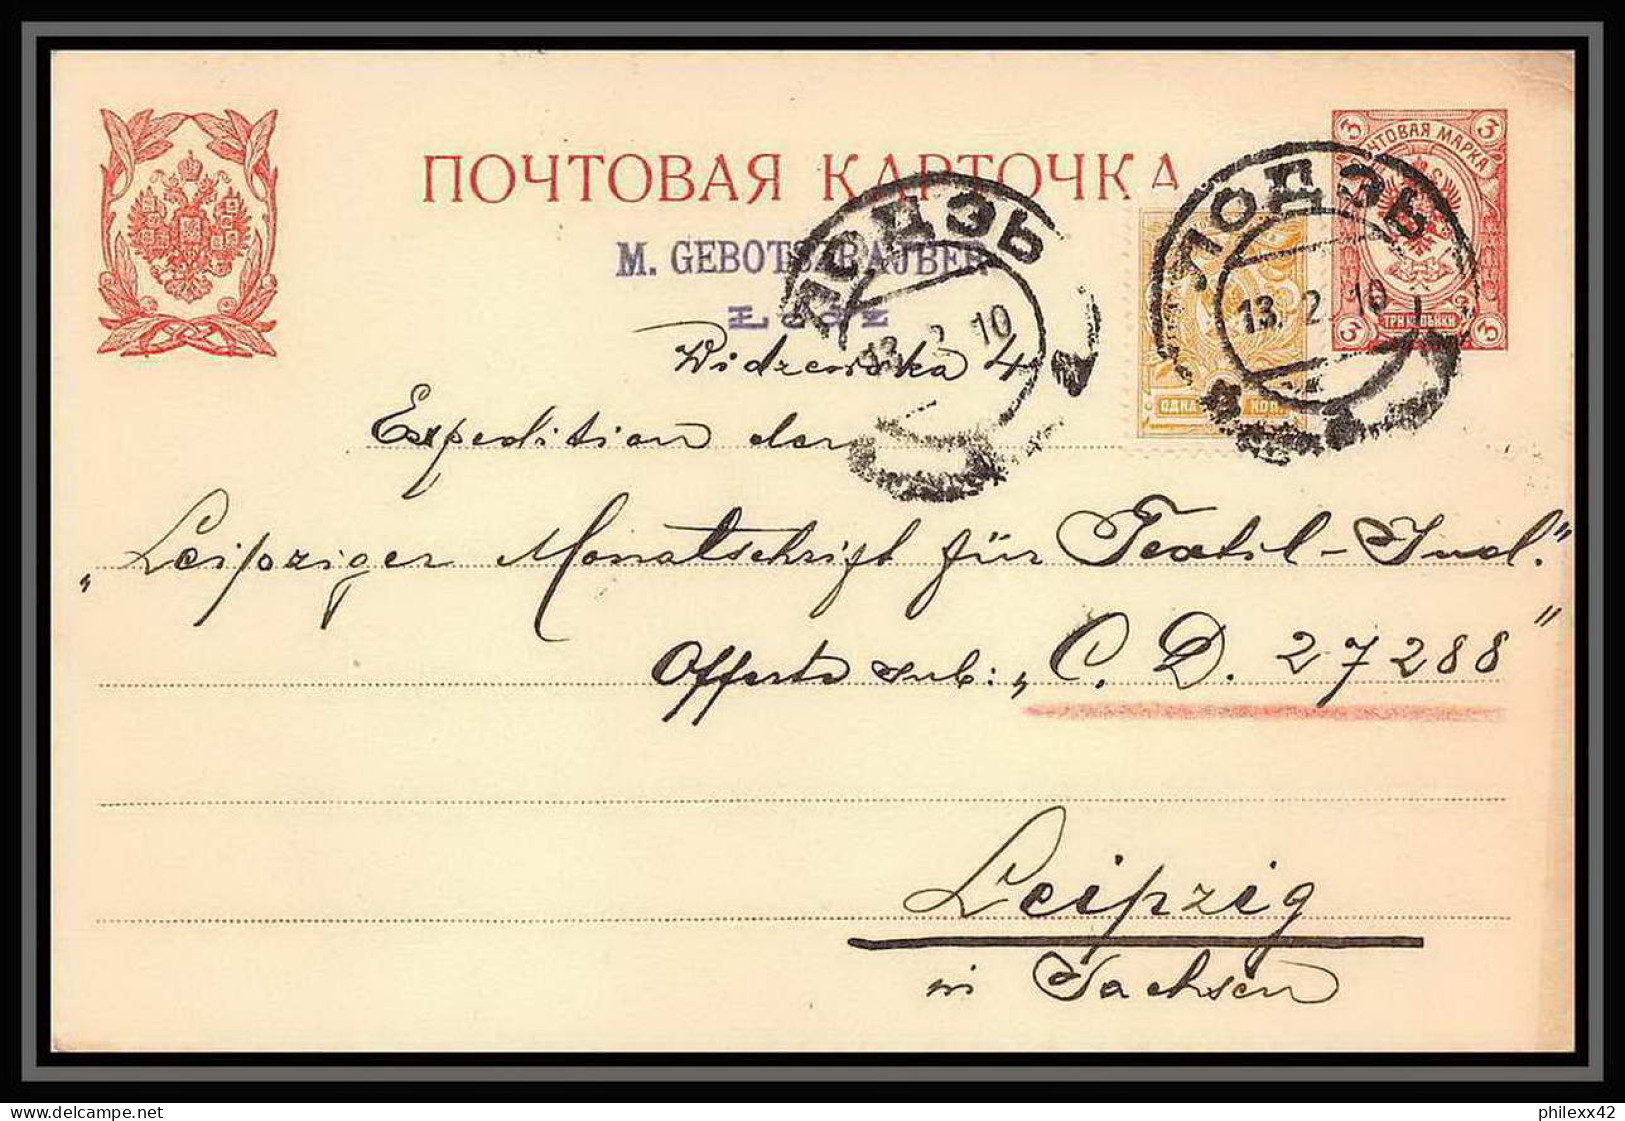 ПОЧТОВАЯ КАРТОЧКА
ПОЧТОВАЯ МАРКА
3 3
3 ТРИ КОПѢЙКИ 3
ЛОДЗЬ
13. 2. 10
ЛОДЗЬ
13. 2. 10
ОДНА КОП.
M. GEBOTSZRAJBER
Widzewska 4
Expedition der
„Leipziger Monatschrift für Textil-Ind."
Offerte sub: „C. D. 27288"
Leipzig
in Sachsen
philexx42